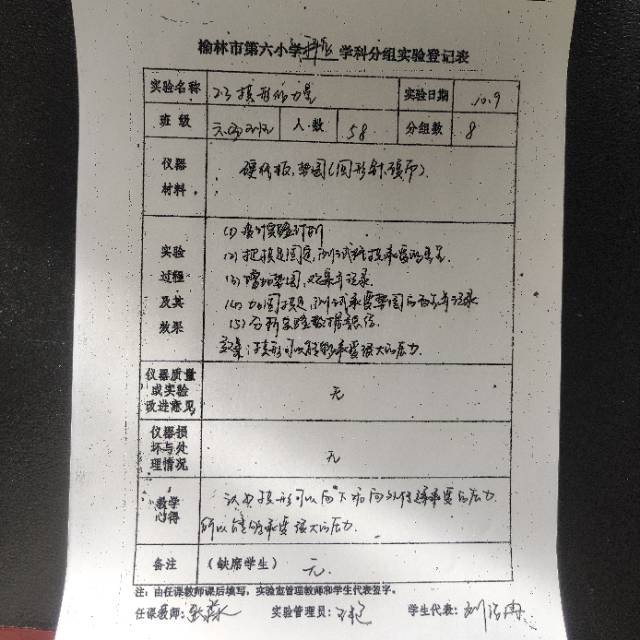 榆林市第六小学科学学科分组实验登记表
实验名称 2.3 拱形的力量 实验日期 10.9
班级 人数 58 分组数 8
仪器材料 硬纸板、垫圈(回形针、硬币).
实验过程及其效果
(1)设计实验计划
(2)把拱足固定,测试拱承受的重量.
(3)增加垫圈,观察并记录
(4)加固拱足,测试承受垫圈的
(5)分析实验数据
拱形可以能够承受很大的压力.
仪器质量或实验改进意见 无
仪器损坏与处理情况 无
教学心得
认为拱形可以向下和向外传递承受的压力
所以能够承受很大的压力.
备注 (缺席学生) 无.
注:由任课教师课后填写,实验室管理教师和学生代表签字。
任课教师: 实验管理员: 学生代表: